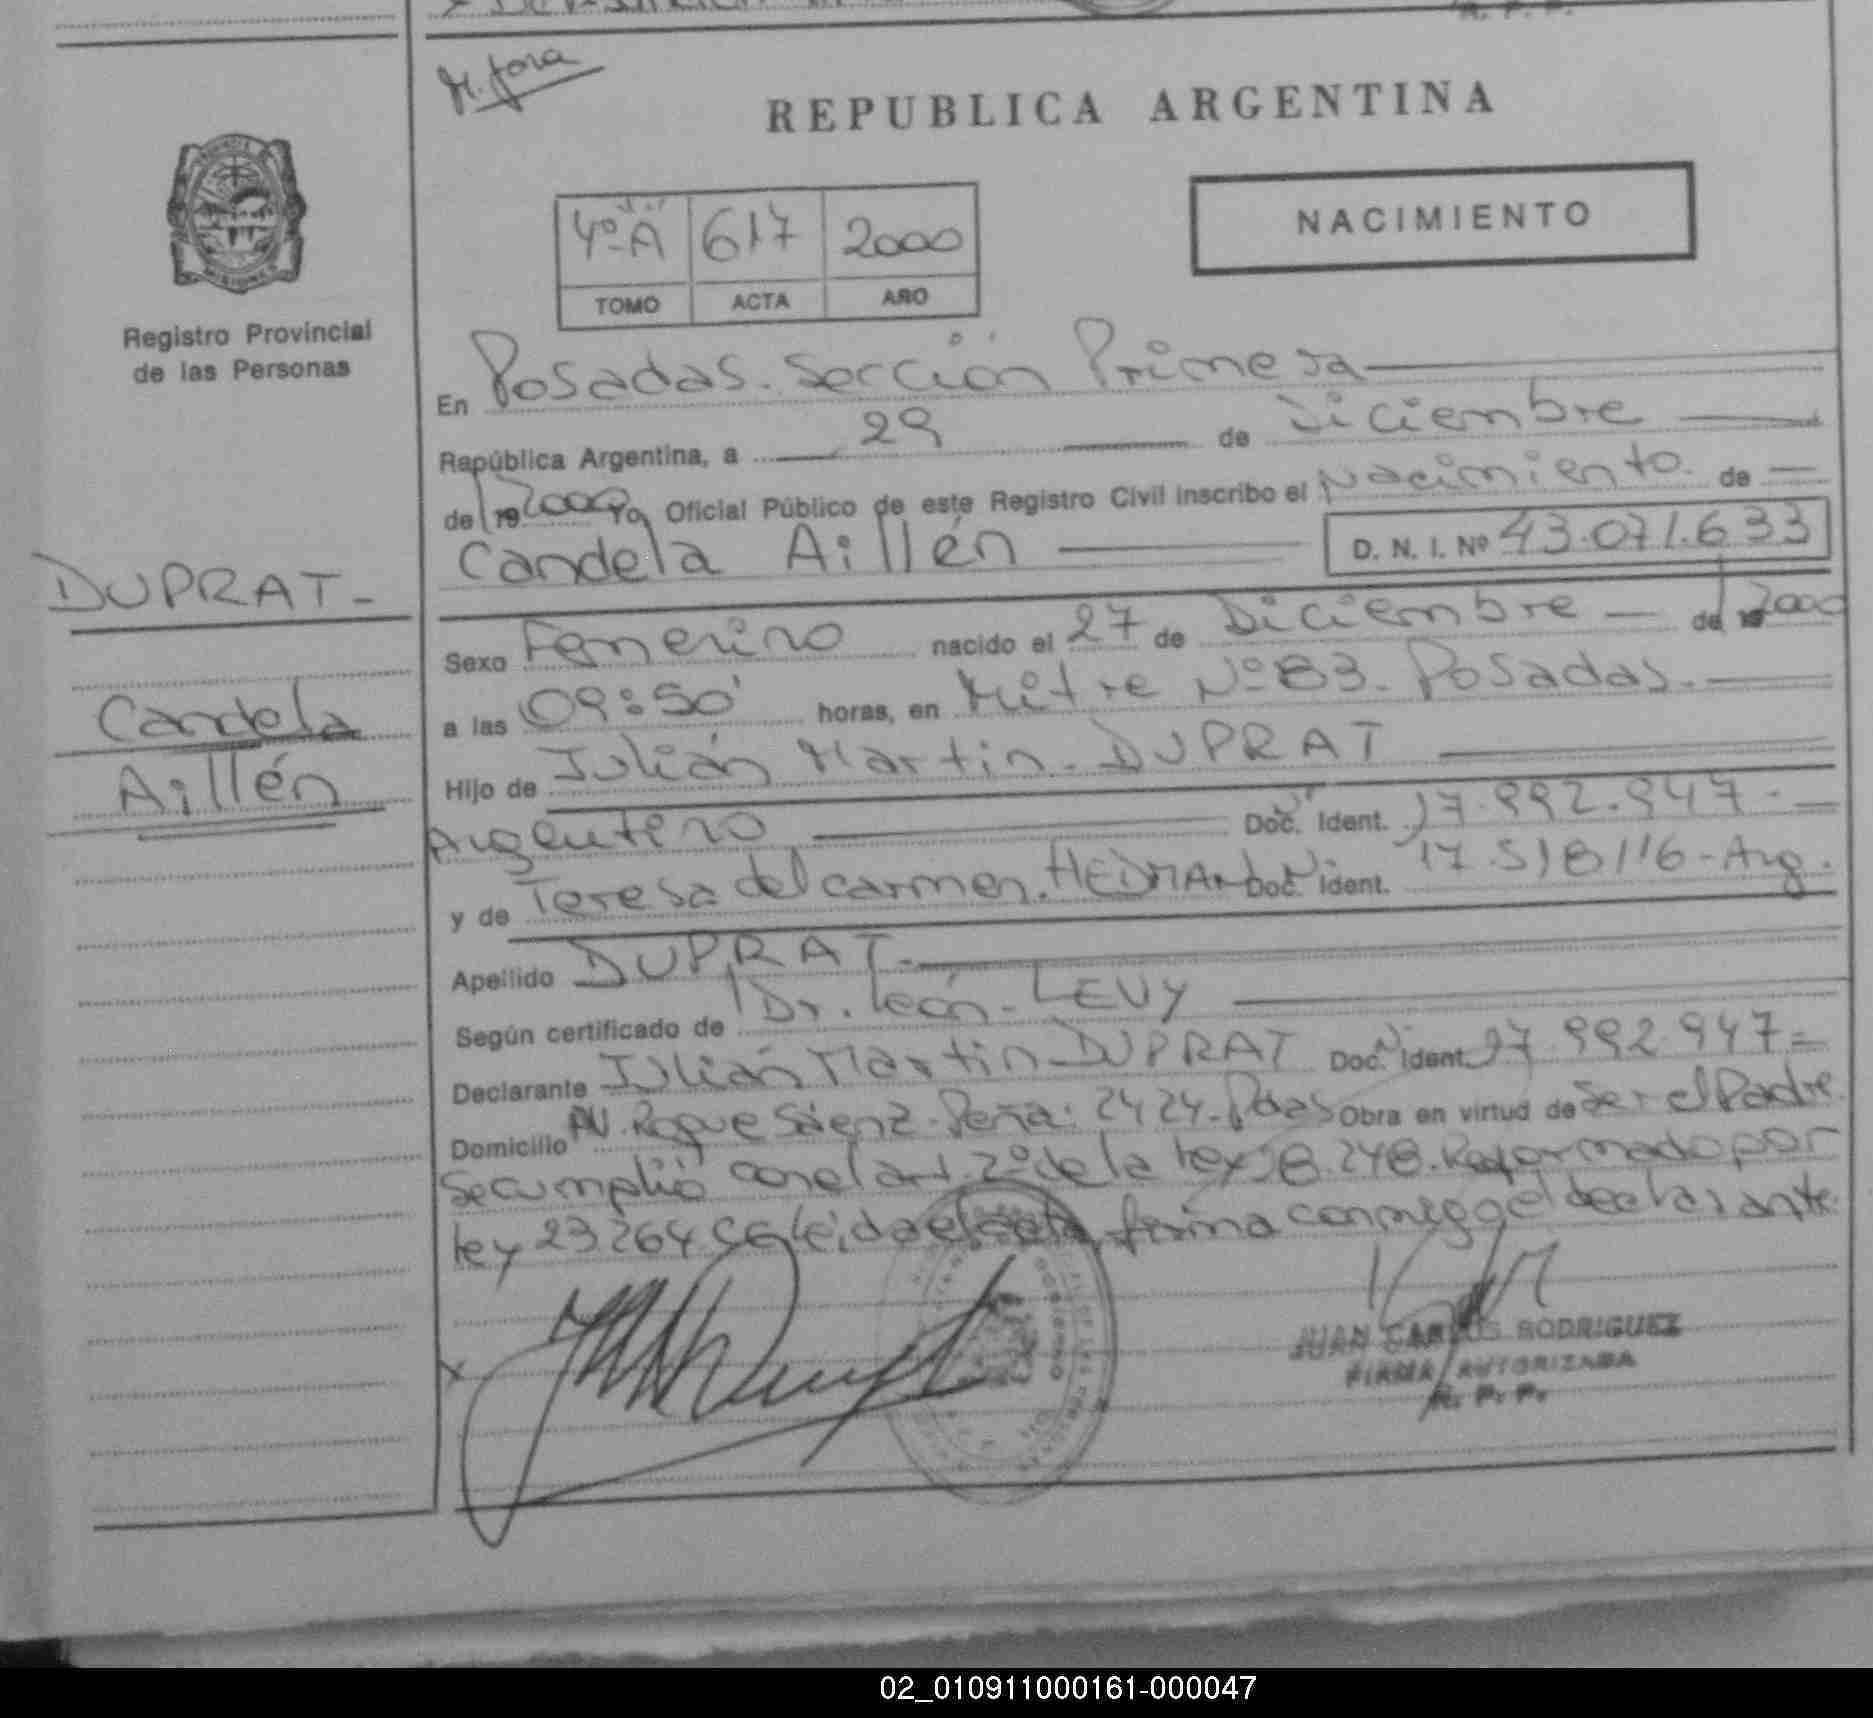 R. P. P.
REPUBLICA ARGENTINA
NACIMIENTO
4º A 617 2000
TOMO ACTA AÑO
Registro Provincial
de las Personas
En Posadas. Sección Primera
República Argentina, a 29 de Diciembre
de 19 2000 Yo, Oficial Público de este Registro Civil inscribo el Nacimiento de
Candela Aillén D. N. I. Nº 43.071.633
DUPRAT-
Candela
Aillén
Sexo Femenino nacido el 27 de Diciembre de 19 2000
a las 09:50 horas, en Mitre Nº 83. Posadas.
Hijo de Julián Martin. DUPRAT
Argentino Doc. Ident. 17.992.947.
y de Teresa del carmen. Doc. Ident. 17.518116-Arg.
Apellido DUPRAT.
Según certificado de Dr. León. LEVY
Declarante Julián Martin DUPRAT Doc. Ident. 17.992.947=
Domicilio AV. Roque Sáenz. Peña: 2424. Pdas Obra en virtud de Ser el Padre.
Se cumplió con el art. 2º de la Ley 18.248. Reformado por
Ley 23264 Leida el acta, firma conmigo el declarante.
JUAN CARLOS RODRIGUEZ
FIRMA AUTORIZADA
R. P. P.
02_010911000161-000047